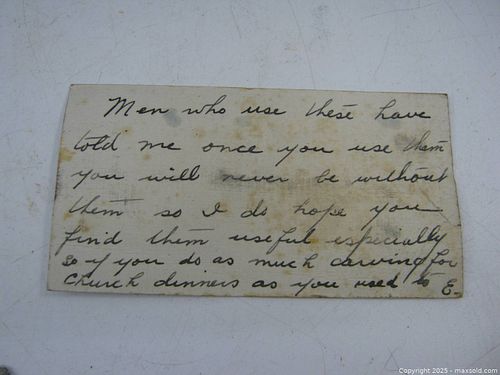 Men who use these have
told me once you use them
you will never be without
them so I do hope you
find them useful especially
so if you do as much carving for
church dinners as you used to E.
Copyright 2025 - maxsold.com